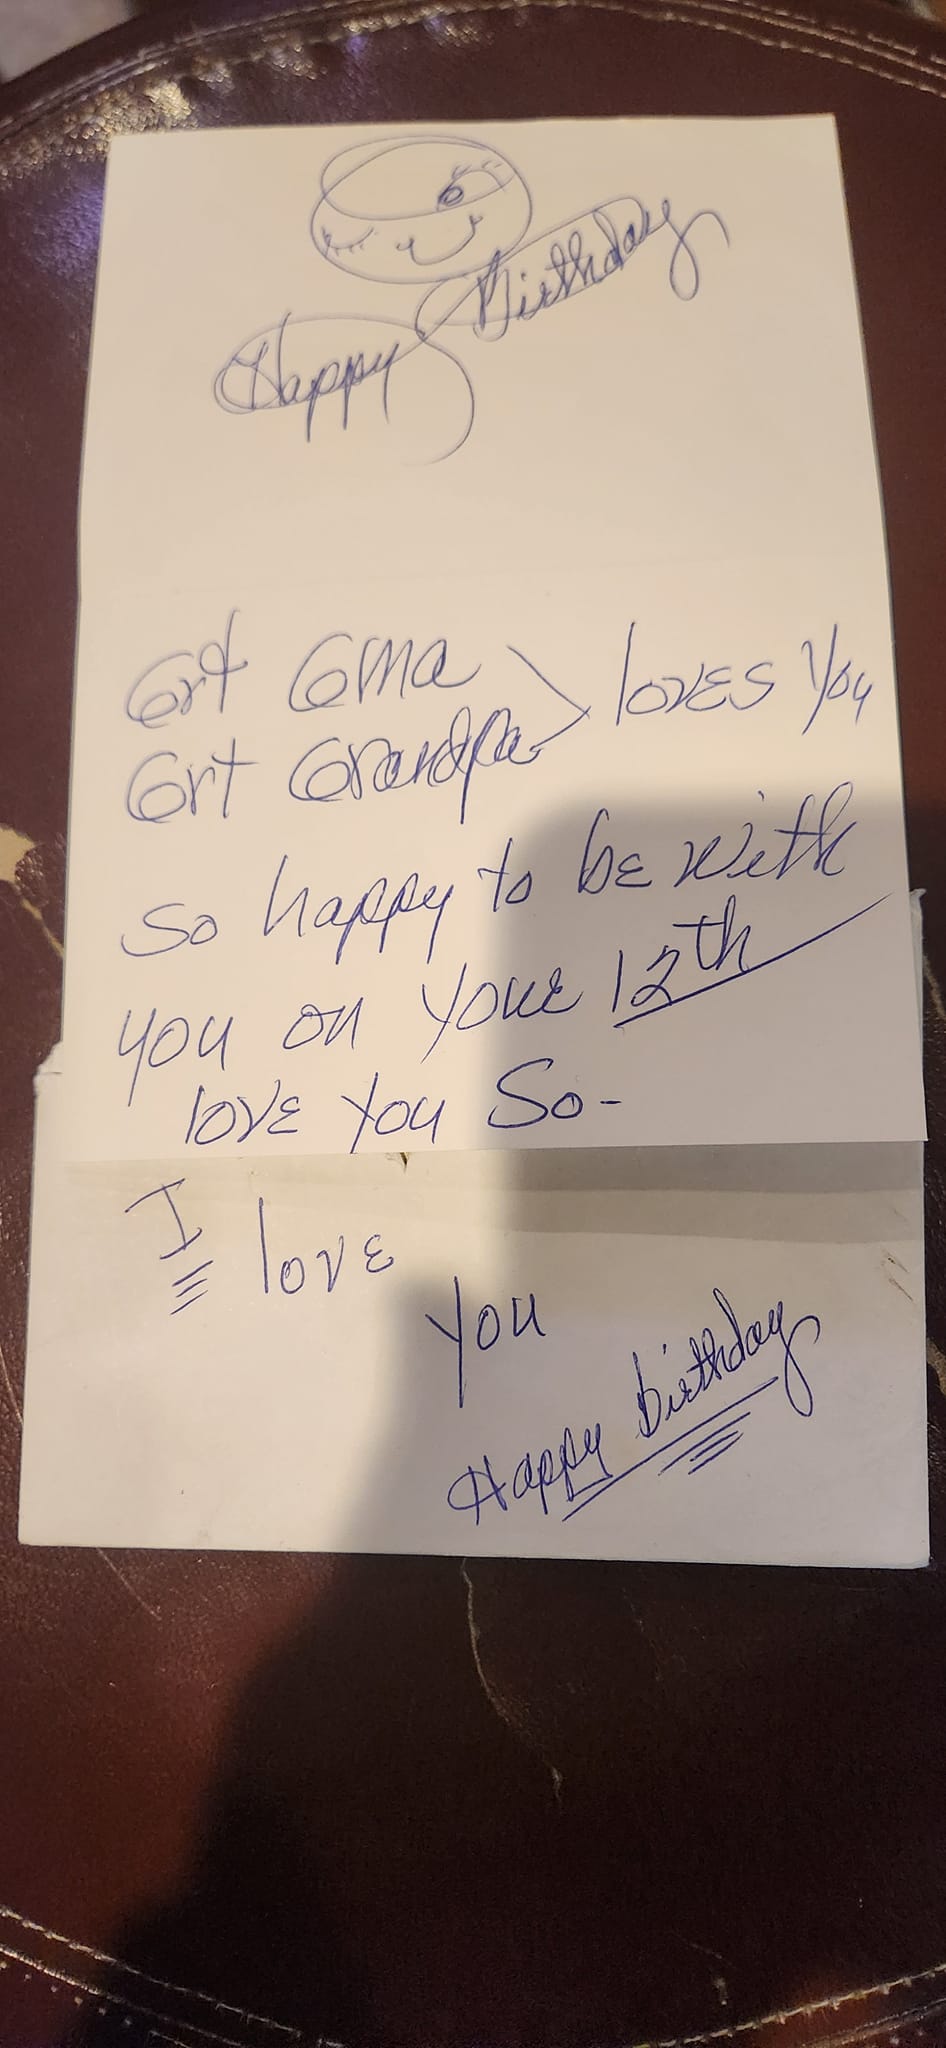 Happy Birthday
Grt Gma
Grt Grandpa > loves you
So happy to be with
you on your 12th
love you So-
I love
you
Happy birthday